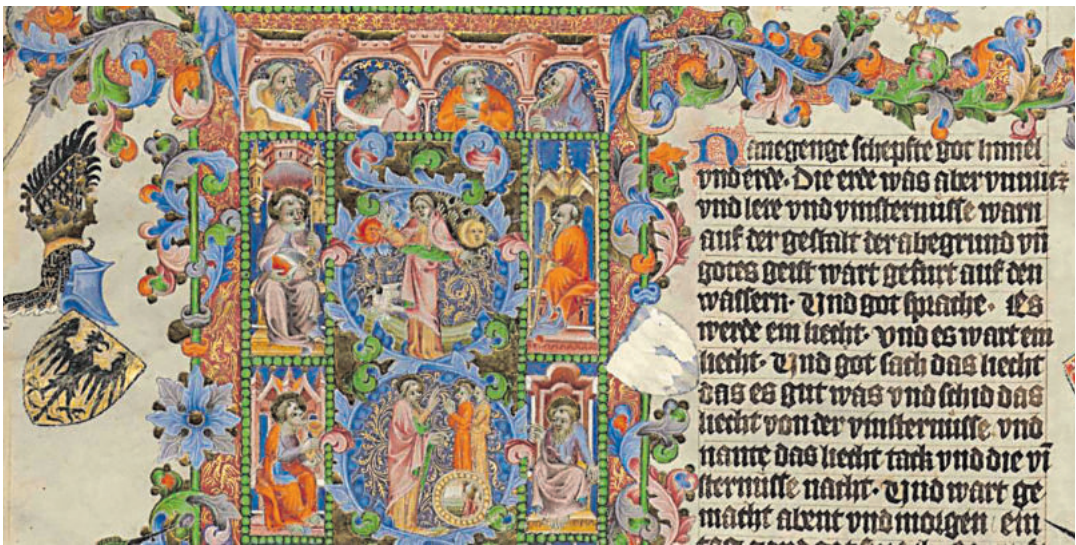 N anegenge schepfte got himel
vnd erde. Die erde was aber vnnucz
vnd lere vnd vinsternusse warn
auf der gestalt der abegrund vn̄
gotes geist wart gefurt auf den
wassern. Vnd got sprache. Es
werde ein liecht. vnd es wart ein
liecht. Vnd got sach das liecht
das es gut was vnd schid das
liecht von der vinsternusse vnd
nante das liecht tack vnd die vī
sternusse nacht. Vnd wart ge
macht abent vnd morgen ein